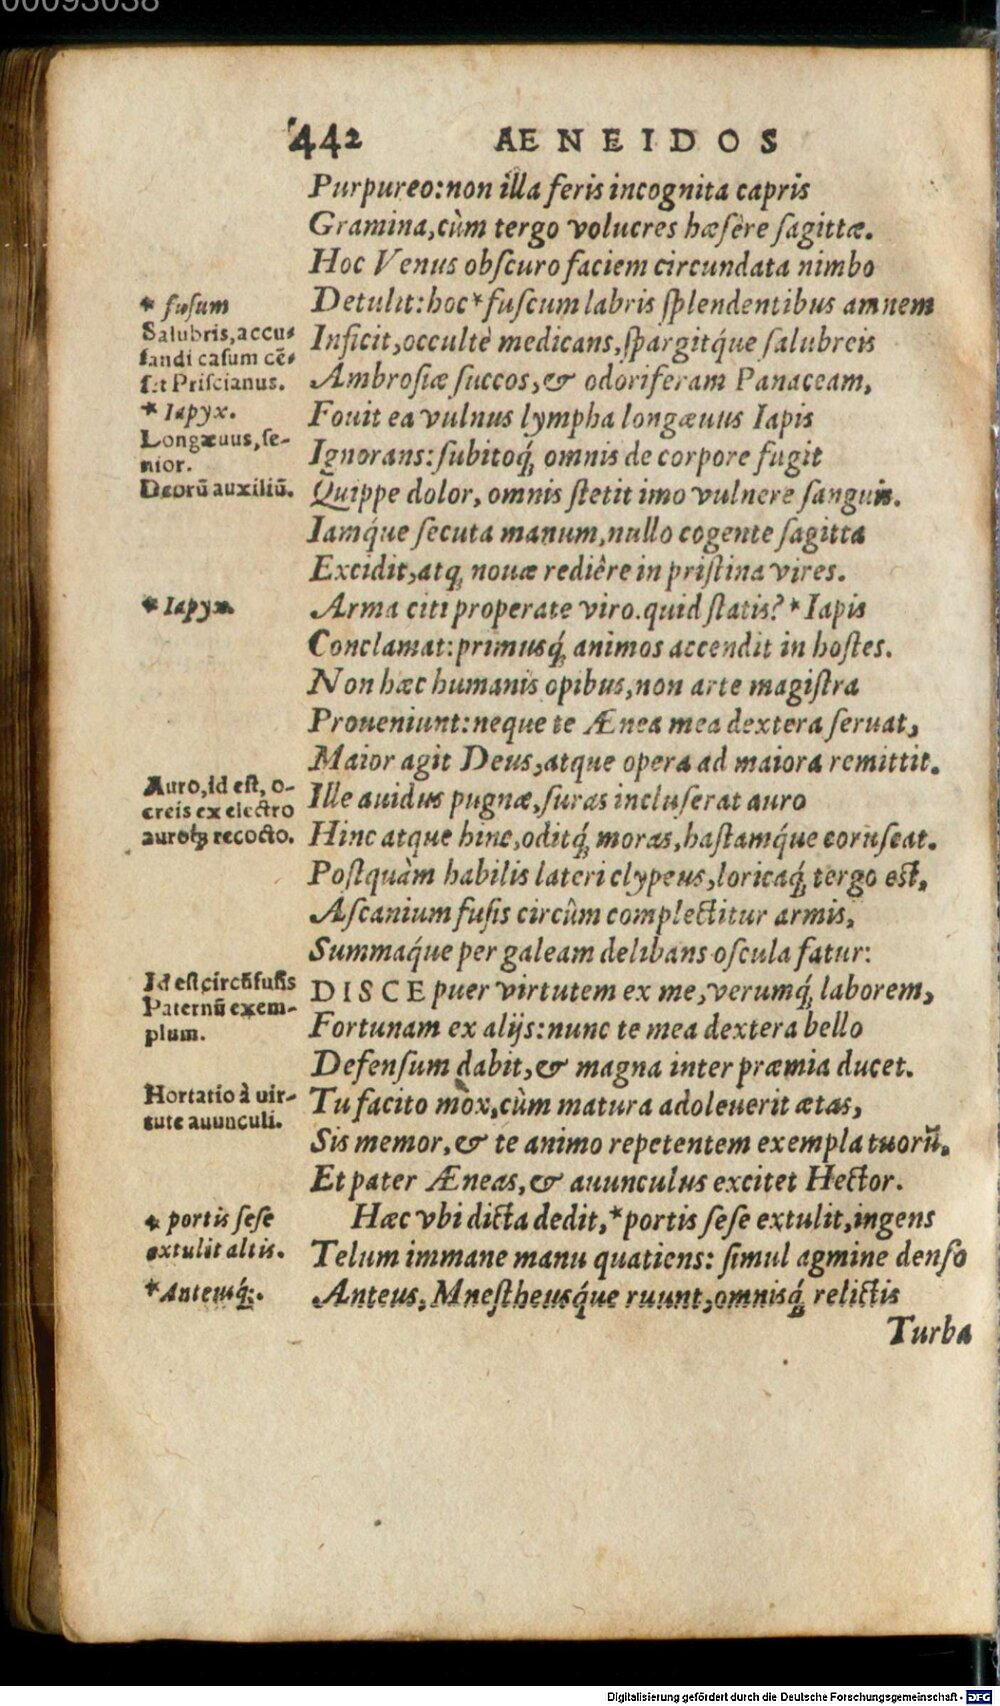 00093038
442 AENEIDOS
Purpureo: non illa feris incognita capris
Gramina, cùm tergo volucres hæsêre sagittæ.
Hoc Venus obscuro faciem circundata nimbo
Detulit: hoc * fuscum labris splendentibus amnem
Inficit, occultè medicans, spargitq́ue salubreis
Ambrosiæ succos, & odoriferam Panaceam,
Fouit ea vulnus lympha longæuus Iapis
Ignorans: subitoq́; omnis de corpore fugit
Quippe dolor, omnis stetit imo vulnere sanguis.
Iamq́ue secuta manum, nullo cogente sagitta
Excidit, atq; nouæ rediêre in pristina vires.
Arma citi properate viro. quid statis? * Iapis
Conclamat: primusq́; animos accendit in hostes.
Non hæc humanis opibus, non arte magistra
Proueniunt: neque te Ænea mea dextera seruat,
Maior agit Deus, atque opera ad maiora remittit.
Ille auidus pugnæ, suras incluserat auro
Hinc atque hinc, oditq́; moras, hastamq́ue coruscat.
Postquàm habilis lateri clypeus, loricaq́; tergo est,
Ascanium fusis circùm complectitur armis,
Summaq́ue per galeam delibans oscula fatur:
DISCE puer virtutem ex me, verumq́; laborem,
Fortunam ex alijs: nunc te mea dextera bello
Defensum dabit, & magna inter præmia ducet.
Tu facito mox, cùm matura adoleuerit ætas,
Sis memor, & te animo repetentem exempla tuorũ.
Et pater Æneas, & auunculus excitet Hector.
Hæc vbi dicta dedit, * portis sese extulit, ingens
Telum immane manu quatiens: simul agmine denso
Anteus, Mnestheusq́ue ruunt, omnisq́; relictis
Turba
* fusum
Salubris, accu-
sandi casum cẽ-
set Priscianus.
* Iapyx.
Longæuus, se-
nior.
Deorũ auxiliũ.
* Iapyx.
Auro, id est, o-
creis ex electro
auroq; recocto.
Id est, circũfusis
Paternũ exem-
plum.
Hortatio à uir-
tute auunculi.
* portis sese
extulit altis.
* Antemq́;.
Digitalisierung gefördert durch die Deutsche Forschungsgemeinschaft - DFG